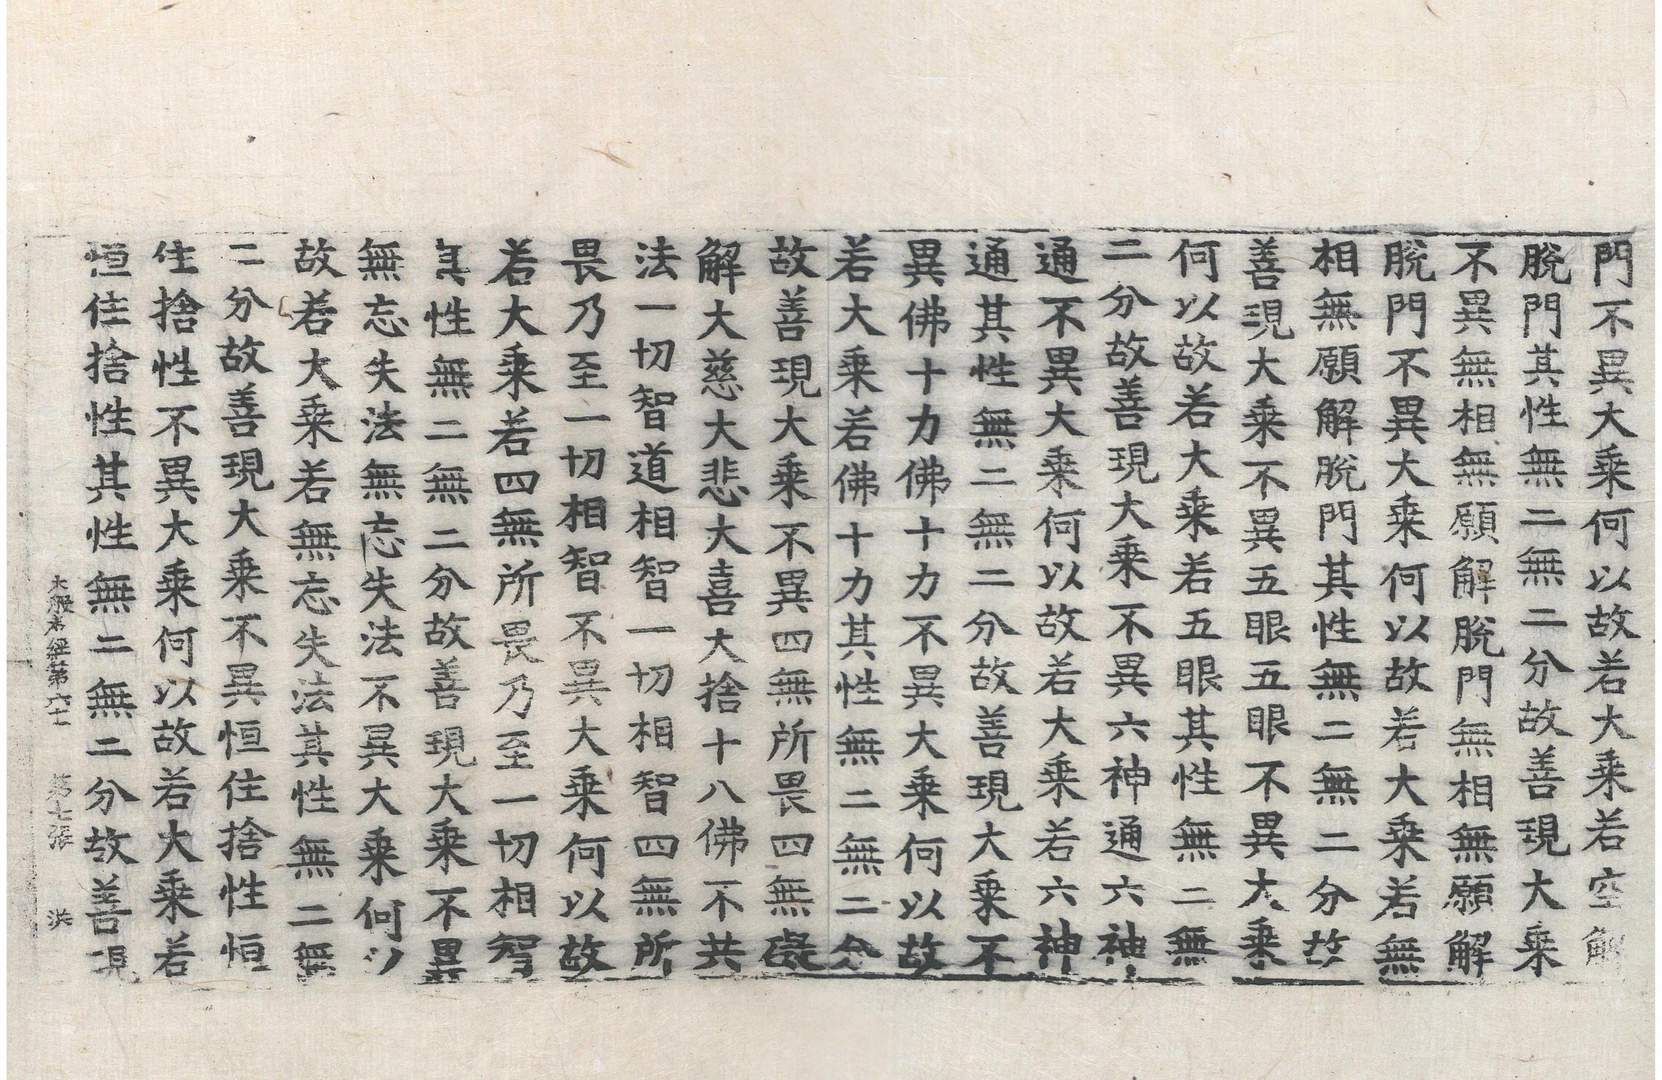 門不異大乘何以故若大乘若空解
脫門其性無二無二分故善現大乘
不異無相無願解解脫門無相無願解
脫門不異大乘何以故若大乘若無
相無願解脫門其性無二無二分故
善現大乘不異五眼五眼不異大乘
何以故若大乘若五眼其性無二無
二分故善現大乘不異六神通六神
通不異大乘何以故若大乘若六神
通其性無二無二分故善現大乘不
異佛十力佛十力不異大乘何以故
若大乘若佛十力其性無二無二分
故善現大乘不異四無所畏四無礙
解大慈大悲大喜大捨十八佛不共
法一切智道相智一切相智四無所
畏乃至一切相智不異大乘何以故
若大乘若四無所畏乃至一切相智
其性無二無二分故善現大乘不異
無忘失法無忘失法不異大乘何以
故若大乘若無忘失法其性無二無
二分故善現大乘不異恒住捨性恒
住捨性不異大乘何以故若大乘若
恒住捨性其性無二無二分故善現
大般若經第六十 第七張 洪